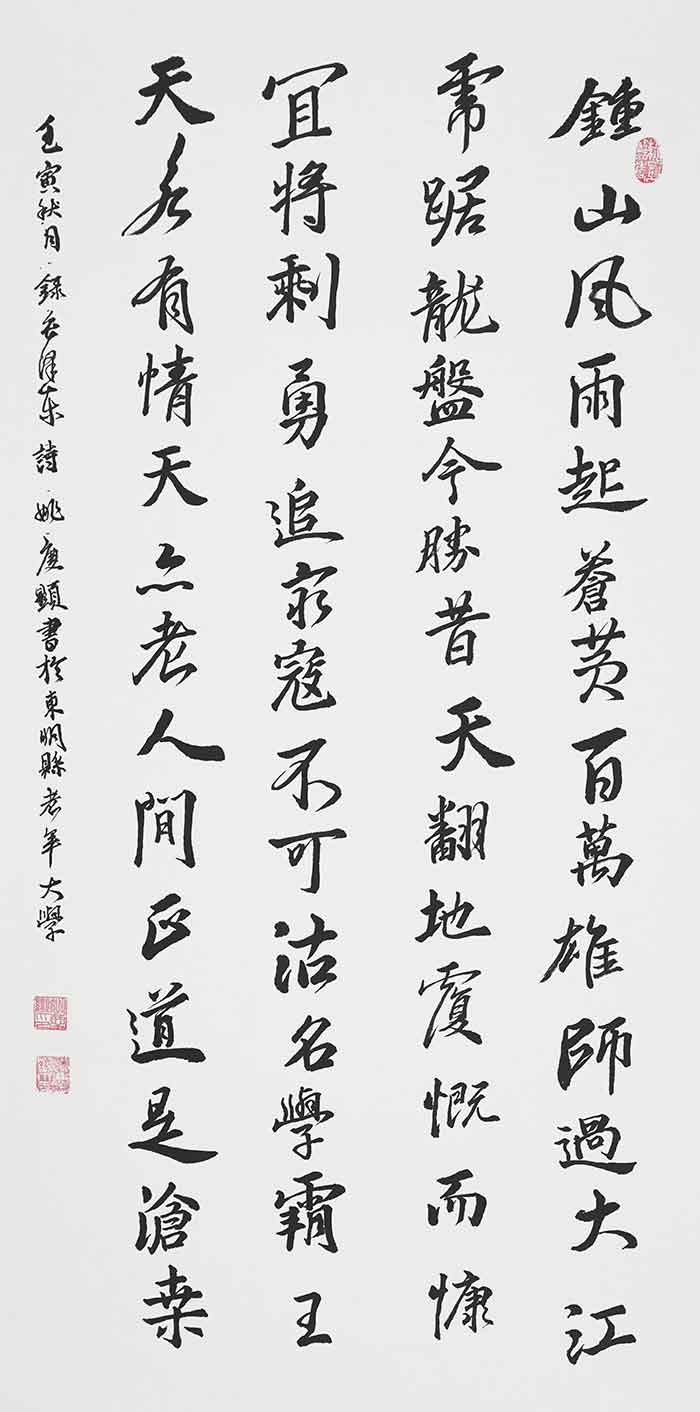 鍾山風雨起蒼黄百萬雄師過大江
虎踞龍盤今勝昔天翻地覆慨而慷
宜將剩勇追窮寇不可沽名學霸王
天若有情天亦老人間正道是滄桑
壬寅秋月錄毛澤東詩姚慶顯書於東明縣老年大學